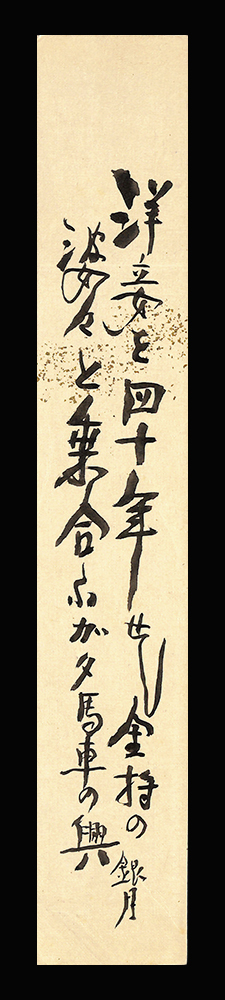 洋妾を四十年せし金持の
婆々と乗合ふガタ馬車の興
銀月